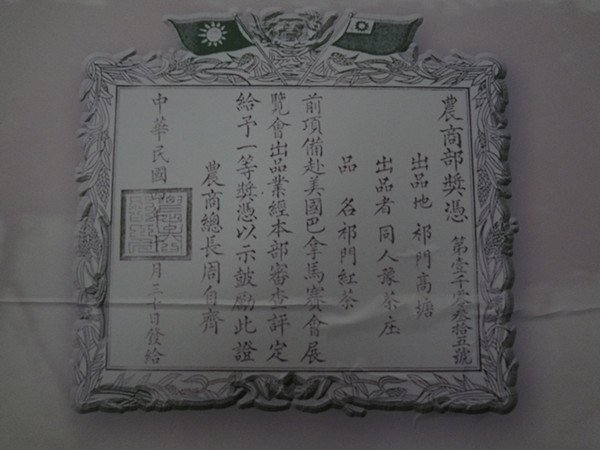 農商部獎憑 第壹千零叁拾五號
出品地 祁門高塘
出品者 同人豫茶庄
品 名 祁門紅茶
前項備赴美國巴拿馬賽會展
覽會出品業經本部審查評定
給予一等獎憑以示鼓勵此證
農商總長周自齊
中華民國 年十 月三十日發給